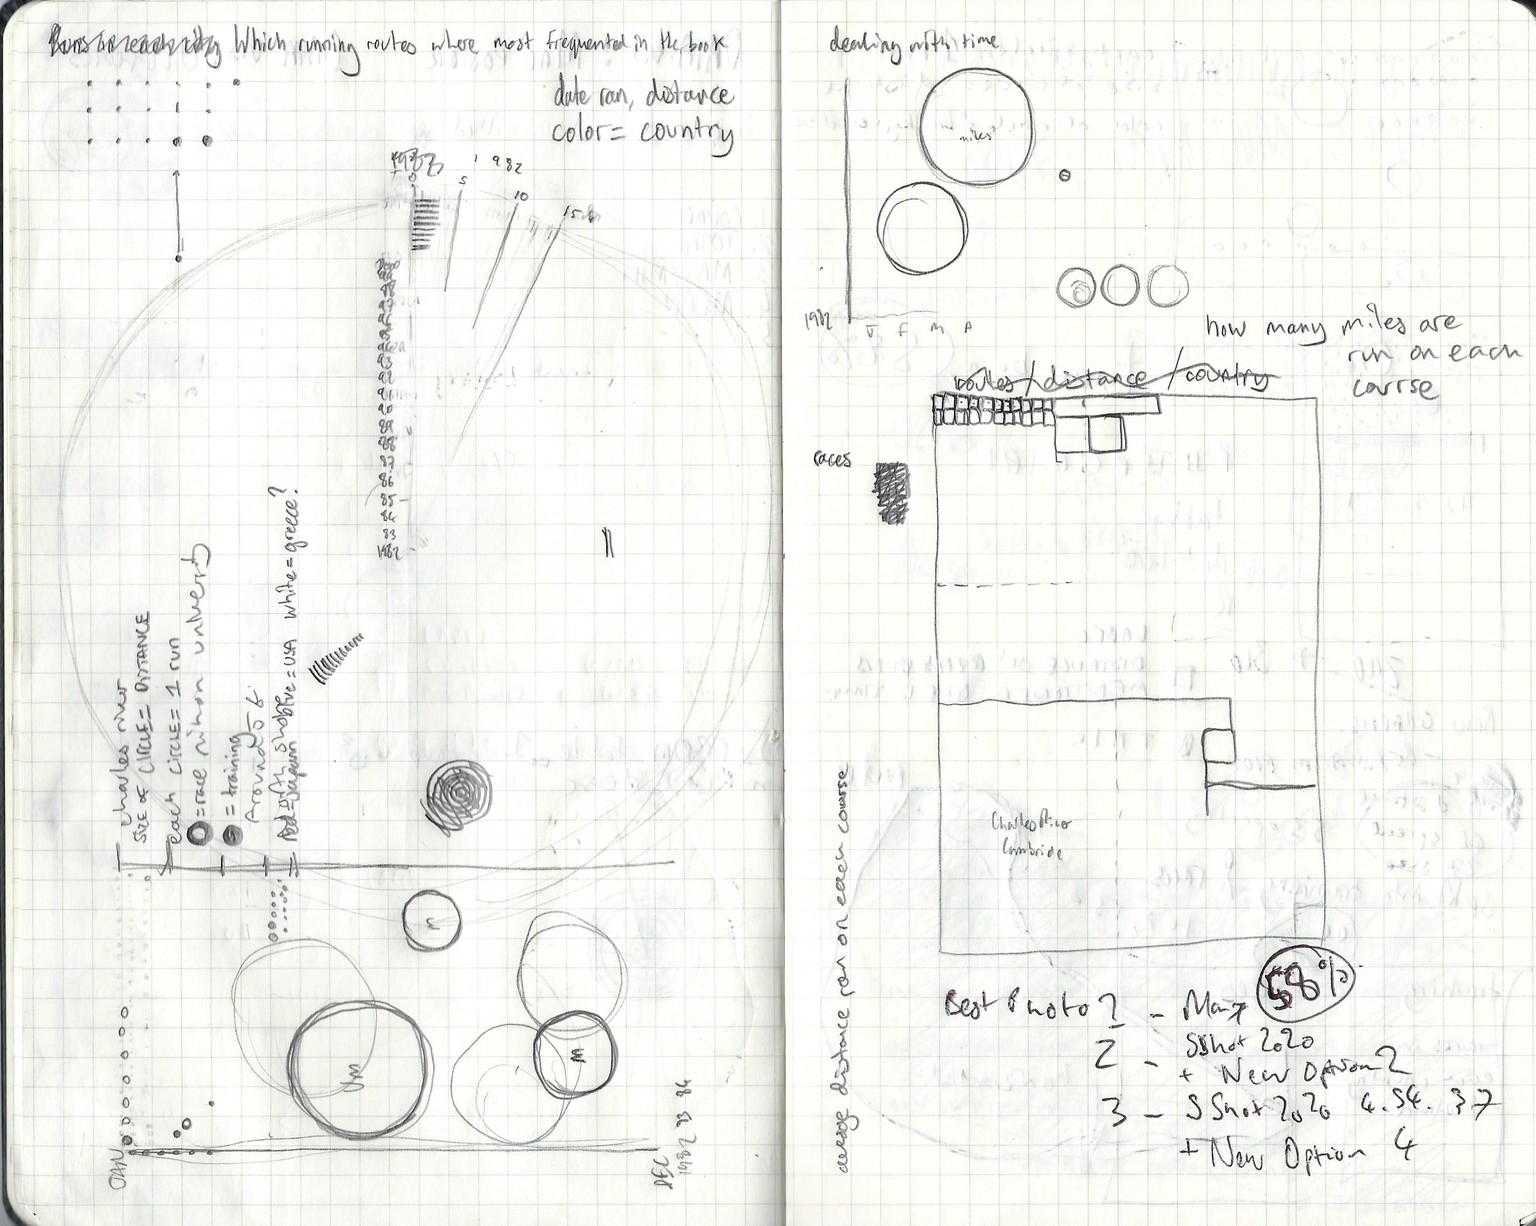 Which running routes where most frequented in the book
date ran, distance
color = country
1982
5
10
15
86
85
84
83
1982
charles river
SIZE OF CIRCLE = DISTANCE
each circle = 1 run
= race
= training
Around 5 6
= USA white = greece?
JAN
DEC
1982 83 84
m
dealing with time
miles
1982
J F M A
how many miles are
run on each
course
routes / distance / country
races
Charles River
average distance ran on each course
58%
Best Photo 1 -
2 - SShot 2020
+ New Option 2
3 - SShot 2020 4.54.37
+ New Option 4